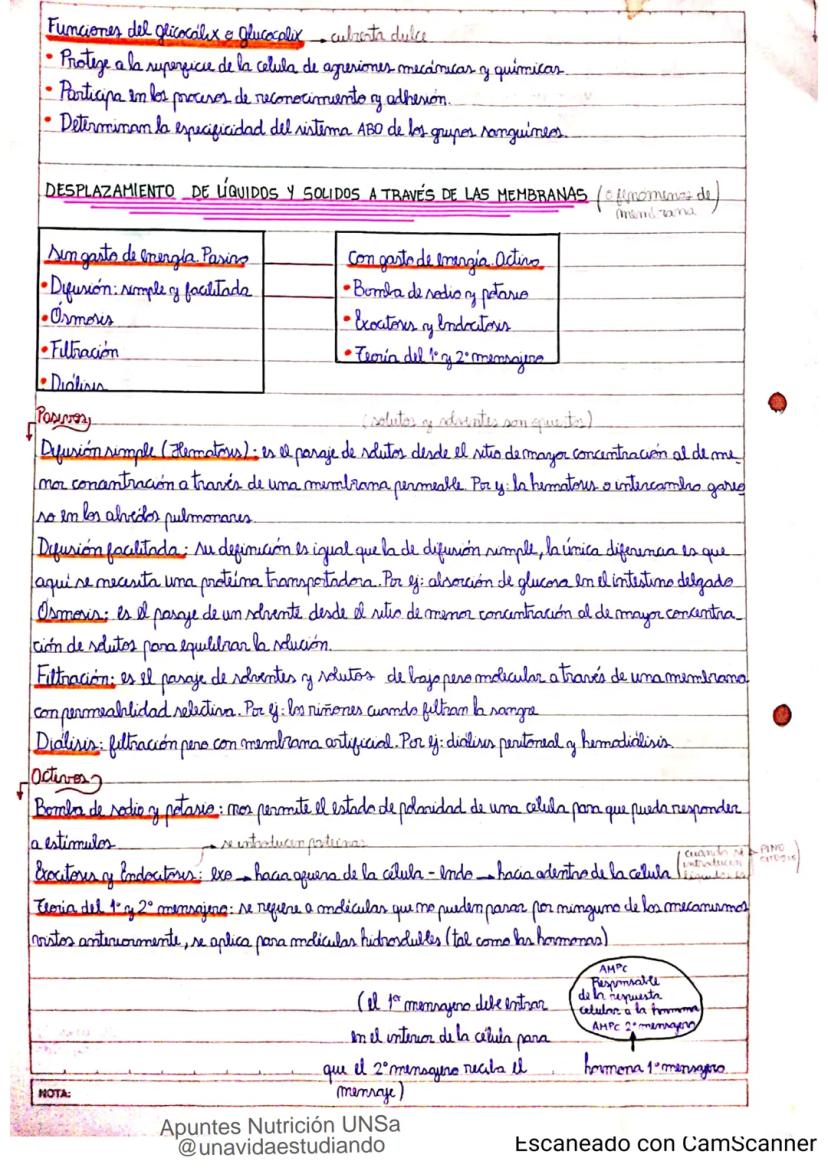 Funciones del glicocálix o glucocalix → cubierta dulce
• Protege a la superficie de la celula de agresiones mecánicas y químicas.
• Participa en los procesos de reconocimiento y adhesión.
• Determinan la especificidad del sistema ABO de los grupos sanguíneos.
DESPLAZAMIENTO DE LÍQUIDOS Y SOLIDOS A TRAVÉS DE LAS MEMBRANAS (o fenómenos de
membrana)
Sin gasto de energía. Pasivo
• Difusión: simple y facilitada
• Ósmosis
• Filtración
• Diálisis
Con gasto de energía. Activo
• Bomba de sodio y potasio
• Exocitosis y Endocitosis
• Teoría del 1º y 2º mensajero
Pasivos
(solutos y solventes son opuestos)
Difusión simple (Hematosis): es el pasaje de solutos desde el sitio de mayor concentración al de me-
nor concentración a través de una membrana permeable. Por ej: la hematosis o intercambio gaseo
so en los alvéolos pulmonares.
Difusión facilitada: su definición es igual que la de difusión simple, la única diferencia es que
aquí se necesita una proteína transportadora. Por ej: absorción de glucosa en el intestino delgado
Osmosis: es el pasaje de un solvente desde el sitio de menor concentración al de mayor concentra-
ción de solutos para equilibrar la solución.
Filtración: es el pasaje de solventes y solutos de bajo peso molecular a través de una membrana
con permeabilidad selectiva. Por ej: los riñones cuando filtran la sangre
Diálisis: filtración pero con membrana artificial. Por ej: diálisis peritoneal y hemodiálisis.
Activos
Bomba de sodio y potasio: nos permite el estado de polaridad de una célula para que pueda responder
a estímulos
→ se introducen proteínas
Exocitosis y Endocitosis: exo → hacia afuera de la célula - endo → hacia adentro de la célula (cuando se
introducen
líquidos → PINO
CITOSIS)
Teoría del 1º y 2º mensajero: se refiere a moléculas que no pueden pasar por ninguno de los mecanismos
vistos anteriormente, se aplica para moléculas hidrosolubles (tal como las hormonas)
(el 1er mensajero debe entrar
en el interior de la célula para
que el 2º mensajero reciba el
mensaje)
AMPc
Responsable
de la respuesta
celular a la hormona
AMPc 2º mensajero
hormona 1º mensajero
NOTA:
Apuntes Nutrición UNSa
@unavidaestudiando
Escaneado con CamScanner